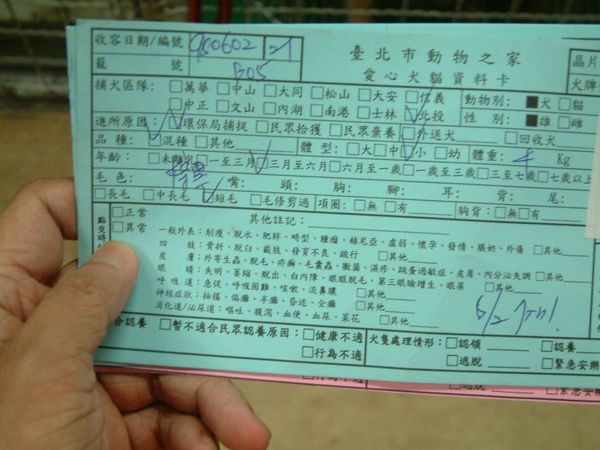 收容日期/編號 980602 21
籠 號 B05
臺北市動物之家
愛心犬貓資料卡
晶片
犬牌
捕犬區隊: □萬華 □中山 □大同 □松山 □大安 □信義
□中正 □文山 □內湖 □南港 □士林 □北投
動物別: ■犬 □貓
性 別: ■雄 □雌
進所原因: □環保局捕捉 □民眾拾獲 □民眾棄養 □外送犬 □回收犬
品 種: □混種 □其他
體 型: □大 □中 □小 □幼 體重: Kg
年齡: □未離乳 □一至三月 □三月至六月 □六月至一歲 □一歲至三歲 □三至七歲 □七歲以上
毛色: 嘴: 頭: 胸: 腳: 耳: 背: 尾:
□長毛 □中長毛 □短毛 □毛修剪過 項圈: □無 □有 胸背: □無 □有
點交時
□正常
□異常
其他註記:
一般外表: 削瘦、脫水、肥胖、畸型、腫瘤、赫尼亞、虛弱、懷孕、發情、脹奶、外傷 □其他
四 肢: 骨折、脫臼、截肢、發育不良、跛行 □其他
皮 膚: 外寄生蟲、脫毛、疥癬、毛囊蟲、黴菌、濕疹、跳蚤過敏症、皮屑、內分泌失調 □其他
眼 睛: 失明、萎縮、脫出、白內障、眼瞼脫毛、第三眼瞼增生、眼屎 □其他
呼 吸 道: 急促、呼吸困難、咳嗽、流鼻膿 □其他
神經症狀: 抽搐、偏癱、半癱、昏迷、全癱 □其他
消化道/泌尿道: 嘔吐、腹瀉、血便、血尿、菜花 □其他
合認養 □暫不適合民眾認養原因: □健康不適
□行為不適
犬隻處理情形: □認領 □認養
□逃脫 □緊急安樂